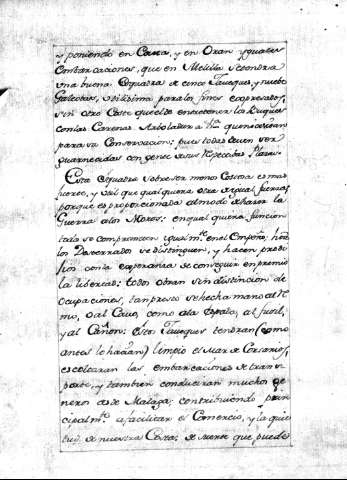 y poniendo en Ceuta, y en Oran yguales
Embarcaciones, que en Melilla se tendra
una buena Esquadra de cinco Javeques, y nueve
Galeotas, utilissima para los fines expresados,
sin otro Coste que el de entretener los Buques
con las Carenas Arboladura &c. que necesitan
para su Conservacion; pues todas deven ser
guarnecidas con gente de sus respectivas Plazas.
Esta Esquadra sobre ser menos Costosa es mas
fuerte, y util que qualquiera otra de igual fuerza;
porque es proporcionada al modo de hacer la
Guerra a los Moros: en qualquiera funcion
toda se compromete igualmte. en el Empeño, hta.
los Desterrados se distinguen, y hacen prodi
gios con la esperanza de conseguir en premio
la libertad: todos obran sin distincion de
ocupaciones, tan presto se hecha mano al Re
mo, o al Cavo, como a la Espada, al fusil,
y al Cañon: Estos Javeques tendran (como
antes lo hacian) limpio el Mar de Corsarios,
escoltaran las embarcaciones de trans
porte, y tambien conduciran muchos ge
neros de Malaga; contribuiendo prin
cipalmte. a facilitar el Comercio, y la quie
tud de nuestra Costa; de suerte que puede